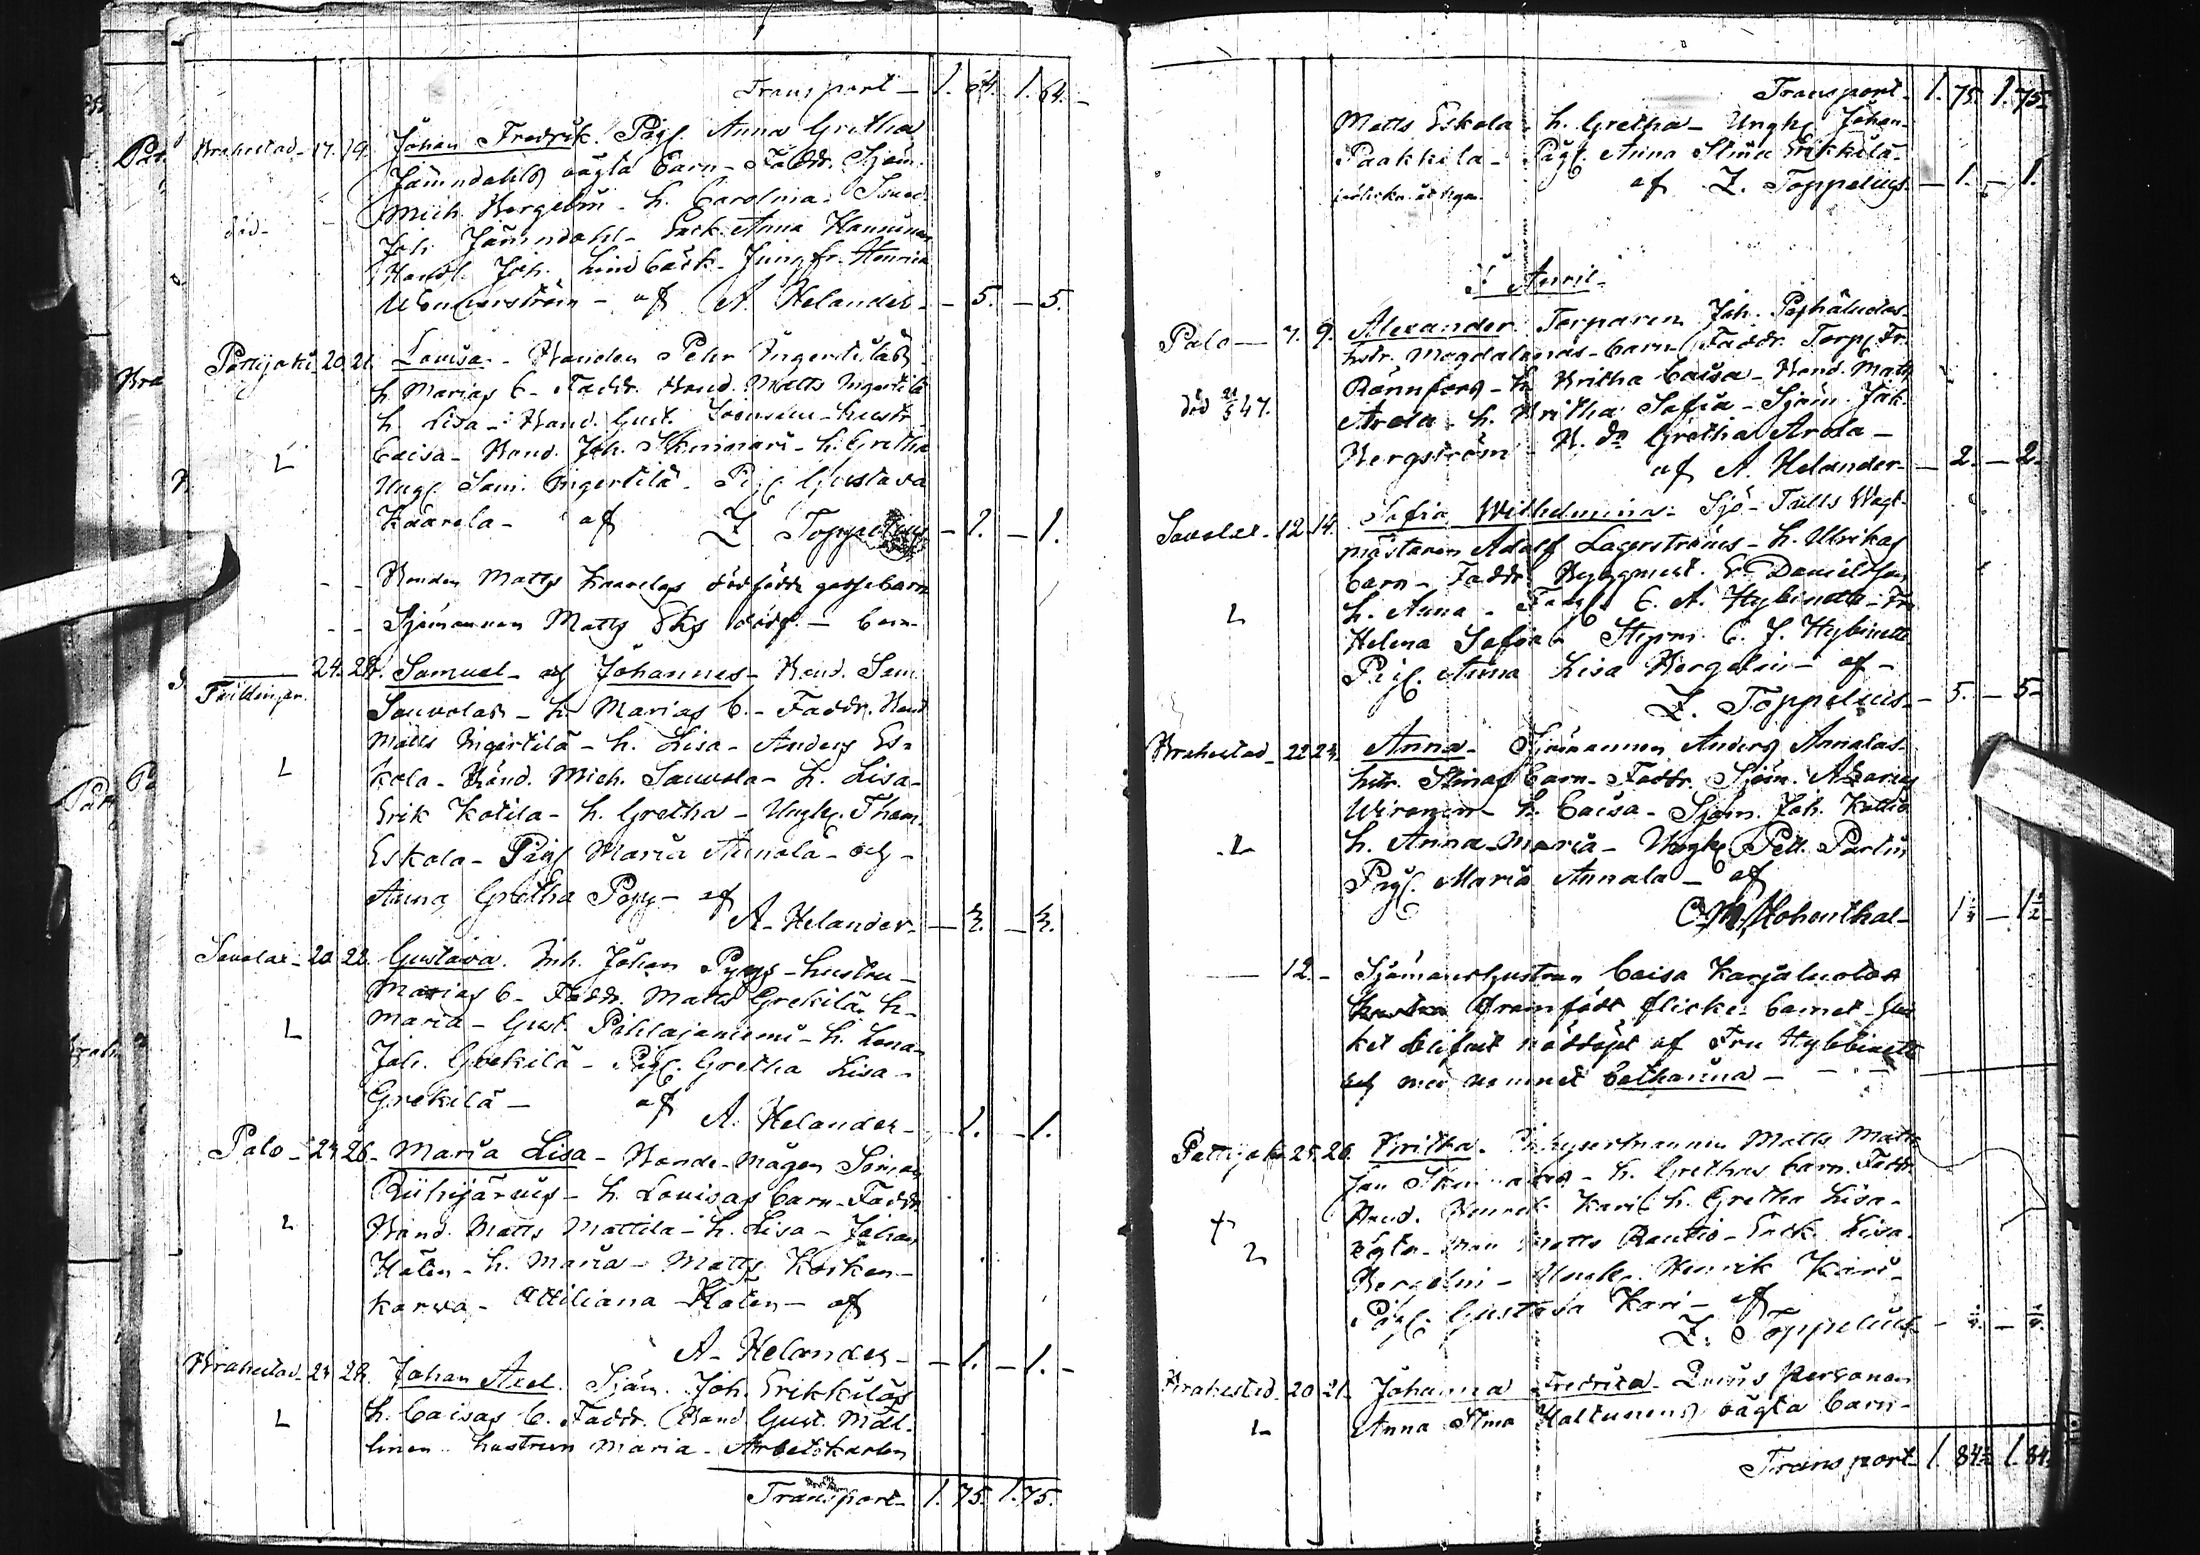 Transport - 1. 64. 1. 64.
Brahestad - 17. 19. Johan Fredrik. Pig. Anna Gretha
Jämndahls oägta barn - Faddr. Sjöm.
Mich. Bergelin - h. Carolina - Smed.
död - Joh. Jämndahl - Enk. Anna Hanninen
Handl. Joh. Lindbäck - Jungfr. Henrica
af A. Helander - 5. - 5.
Pattijoki 20. 21. Lovisa - Bonden Petter Ingertiläs
h. Marias b. - Faddr. Bond. Matts Ingertilä
h. Lisa - Bond. Gust. - hustr.
L Caisa - Bond. Joh. - h. Gretha
Ungk. Sam. Ingertilä - Pig. Gustava
Kaarela - af Z. Toppelius - 1. - 1.
- - Bonden Matts Kaarelas dödfödde gossebarn
- - Sjömannen Matts dödf. - barn -
24. 28. Samuel - och Johannes - Bond. Sam.
Tvillingar. Sauvolas - h. Marias b. - Faddr. Bond
Matts Ingertilä - h. Lisa - Anders Es-
L kola - Bond. Mich. Sauvola - h. Lisa -
Erik Kotila - h. Gretha - Ungk. Thom.
Eskola - Pig. Maria Annala - och -
Anna Gretha Pyy - af
A. Helander -
Savolax - 20. 22. Gustava. Inh. Johan Pyys - hustru -
Marias b - Faddr. Matts Grekilä h -
L Maria - Gust. Pihlajaniemi - h. Lena -
Joh. Grekilä - Pig. Gretha Lisa -
Grekilä - af
A. Helander - 1. - 1.
Palo - 24. 26. - Maria Lisa - Bonde-mågen
Riihijärvis - h. Lovisas barn - Faddr
L Bond. Matts Mattila - h. Lisa - Johan
Häten - h. Maria - Matts Korken-
karwa - Ottiliana Häten - af
A. Helander - 1. - 1. -
Brahestad - 24. 28. Johan Axel. Sjöm. Joh. Erikkiläs
L h. Caisas b. Faddr. Bond Gust. Mäl-
linen - hustrun Maria - Arbetskarlen
Transport - 1. 75. 1. 75.
Transport - 1. 75. 1. 75.
Matts Eskola - h. Gretha - Ungk. Johan
Paakkila - Pig. Anna Stina Erikkilä -
af Z. Toppelius - 1. - 1.
I April.
Palo - 7. 9. Alexander. Torparen Joh. Pojhäludas
hstr. Magdalenas - barn - Faddr. Torp. Fr.
Rönnfors - h. Britha Caisa - Bond. Matts
död 21/5 47. Arola - h. Britha Sofia - Sjöm. Jak.
Bergström - B. do Gretha Arola -
af A. Helander - 2. - 2.
Savolax - 12. 14. Sofia Wilhelmina. Sjö-Tulls Wagt-
mästaren Adolf Lagerströms - h. Ulrikas
barn - Faddr. Byggmest. E. Danielsson
L h. Anna - C. A. Hybinette - Fr.
Helena Sofia - Styrm. C. J. Hybinette
Pig. Anna Lisa Bergelin - af -
Z. Toppelius - 5. - 5.
Brahestad - 22. 24. Anna - Sjömannen Anders Annalas
hstr. Stinas barn - Faddr. Sjöm.
Wironen - h. Caisa - Sjöm. Joh. Kettio
L h. Anna Maria - Ungk. Pett. Partin
Pig. Maria Annala - af
C. M. Hohenthal - 1½ - 1½
- 12. - Sjömanshustrun Caisa Karjaluotos
framfödt flicke-barnet - hvil
ket blifvit nöddöpt af Fru Hybbinette
och med namnet Catharina -
Pattijoki 25. 26. Britha. Matts Matts
son - h. Grethas barn. Faddr.
Bond. Henrik Kari h. Gretha Lisa -
L Matts Rautio - Enk. Lisa
Bergelin - Ungk. Henrik Kari -
Pig. Gustava Kari - af
Z. Toppelius -
Brahestad 20. 21. Johanna Fredrika - Qvins Personen
L Anna Stina Haltunens oägta barn -
Transport - 1. 84½ 1. 84½